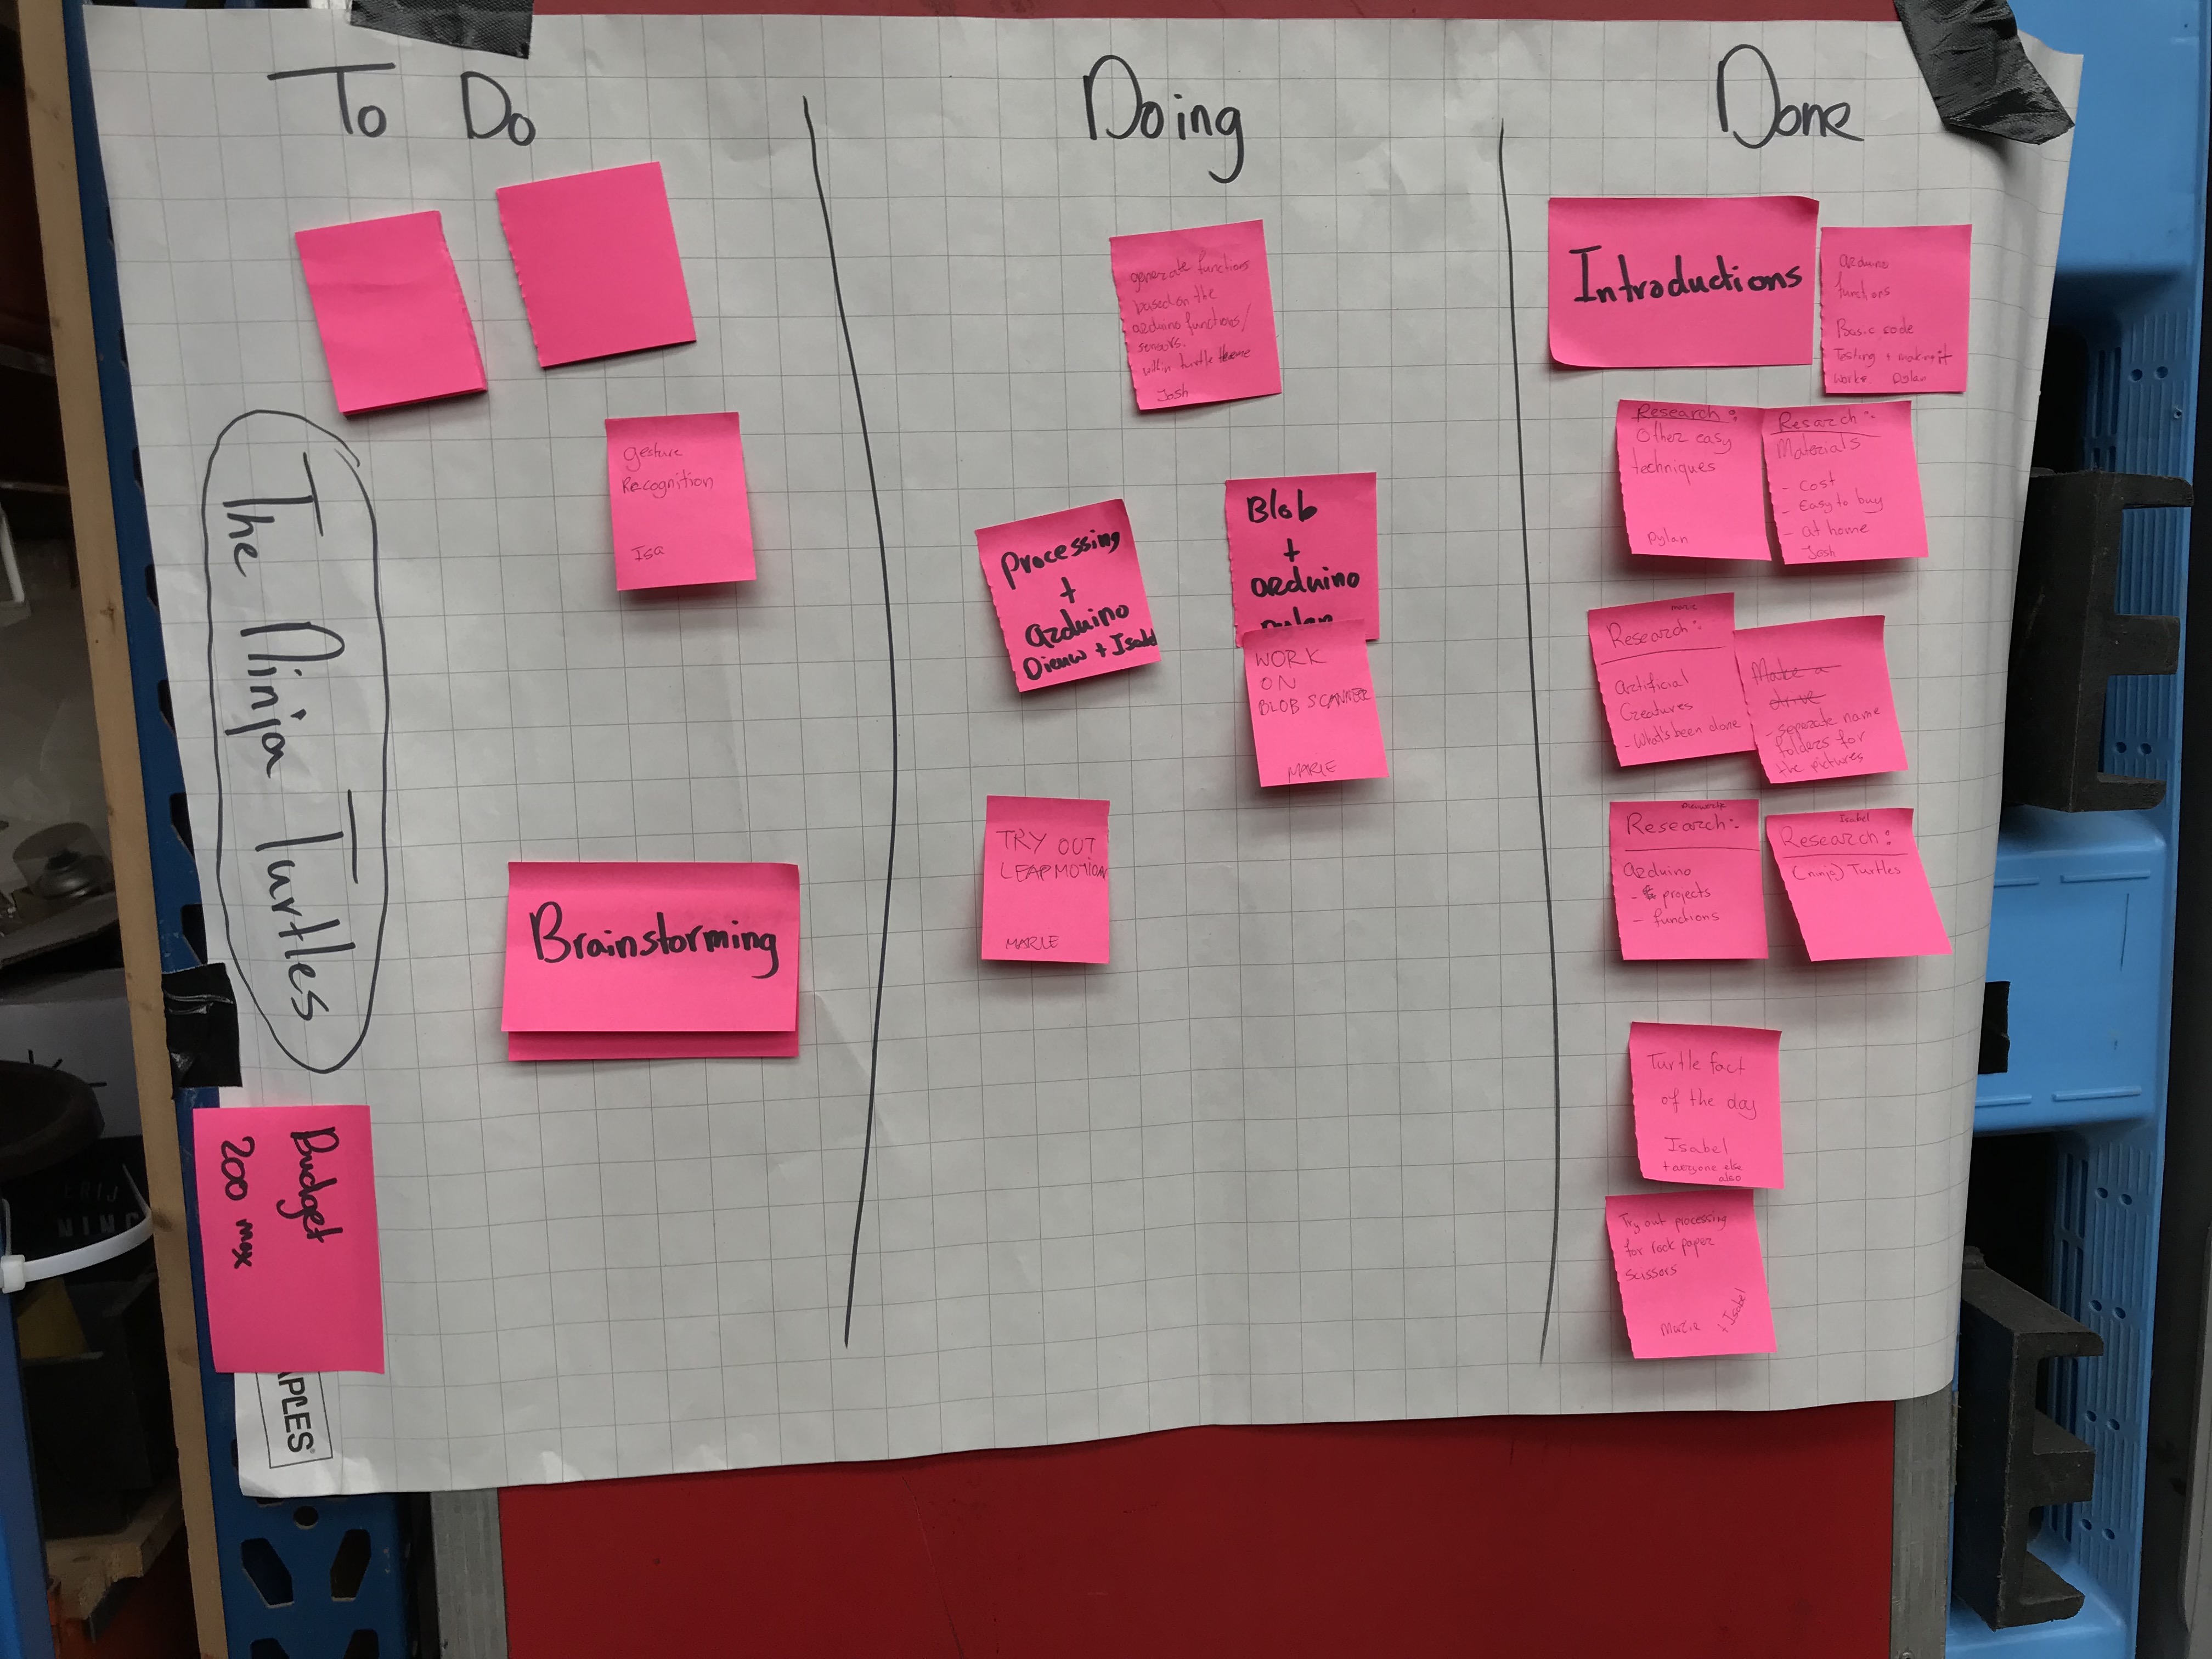 To Do
Gesture
Recognition
Isa
The Ninja Turtles
Brainstorming
Budget
200 max
APLES
Doing
generate functions
based on the
arduino functions/
sensors.
within turtle theme
Josh
Processing
+
arduino
Dieuw + Isabel
Blob
+
arduino
Dylan
WORK
ON
BLOB SCANNER
MARIE
TRY OUT
LEAPMOTION
MARIE
Done
Introductions
arduino
functions
Basic code
Testing + making it
work. Dylan
Research:
Other easy
techniques
Dylan
Resarch:
Materials
- cost
- Easy to buy
- at home
Josh
marie
Research:
artificial
Creatures
- What's been done
Make a
drive
- seperate name
folders for
the pictures
Research:
arduino
- projects
- functions
Isabel
Research:
(ninja) Turtles
Turtle fact
of the day
Isabel
also
Try out processing
for rock paper
scissors
Marie + Isabel